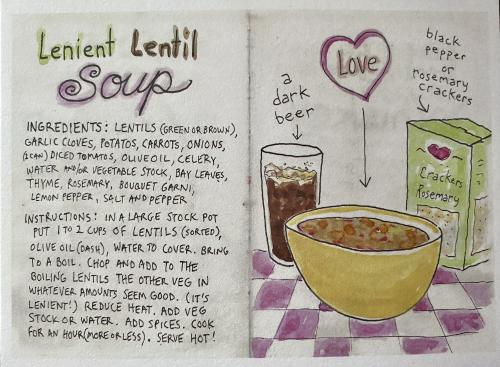 Lenient Lentil
Soup
INGREDIENTS: LENTILS (GREEN OR BROWN),
GARLIC CLOVES, POTATOS, CARROTS, ONIONS,
(1 CAN) DICED TOMATOS, OLIVE OIL, CELERY,
WATER AND/OR VEGETABLE STOCK, BAY LEAVES,
THYME, ROSEMARY, BOUQUET GARNI,
LEMON PEPPER, SALT AND PEPPER
INSTRUCTIONS: IN A LARGE STOCK POT
PUT 1 TO 2 CUPS OF LENTILS (SORTED),
OLIVE OIL (DASH), WATER TO COVER. BRING
TO A BOIL. CHOP AND ADD TO THE
BOILING LENTILS THE OTHER VEG IN
WHATEVER AMOUNTS SEEM GOOD. (IT'S
LENIENT!) REDUCE HEAT. ADD VEG
STOCK OR WATER. ADD SPICES. COOK
FOR AN HOUR (MORE OR LESS). SERVE HOT!
a
dark
beer
Love
black
pepper
or
rosemary
crackers
Crackers
Rosemary